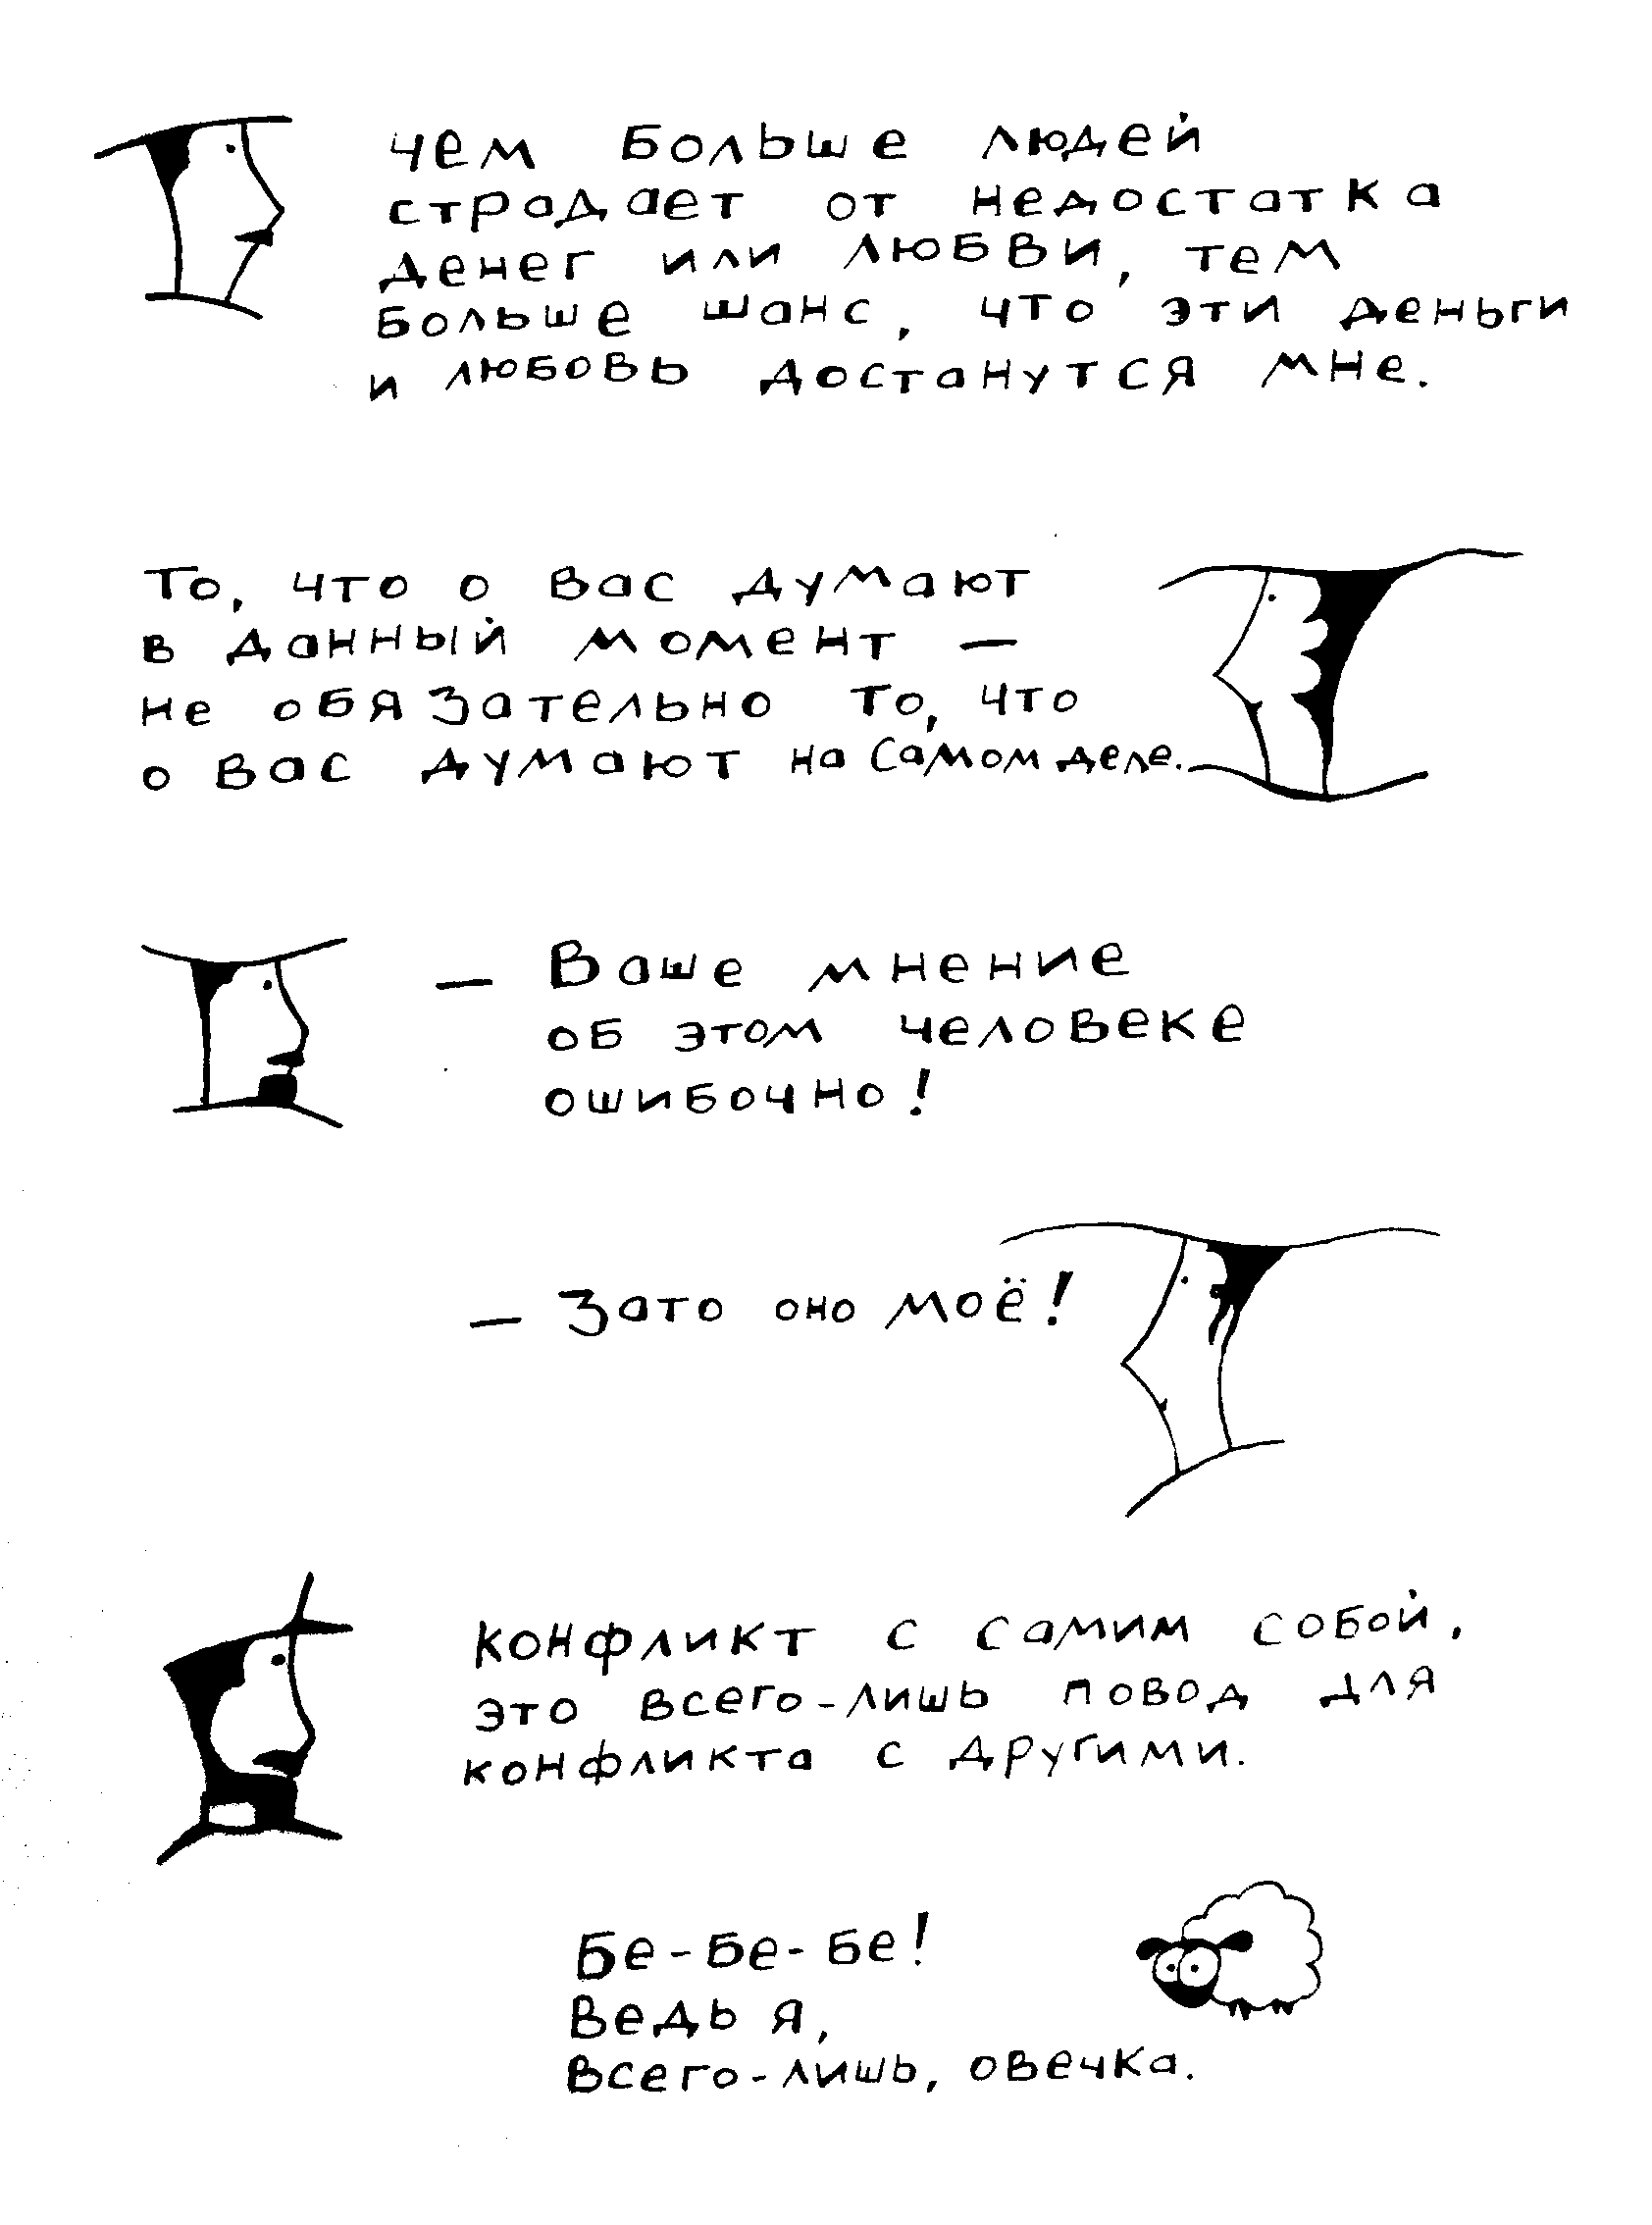 Чем больше людей
страдает от недостатка
денег или любви, тем
больше шанс, что эти деньги
и любовь достанутся мне.
То, что о вас думают
в данный момент —
не обязательно то, что
о вас думают на самом деле.
— Ваше мнение
об этом человеке
ошибочно!
— Зато оно моё!
Конфликт с самим собой,
это всего-лишь повод для
конфликта с другими.
Бе-бе-бе!
Ведь я,
всего-лишь, овечка.